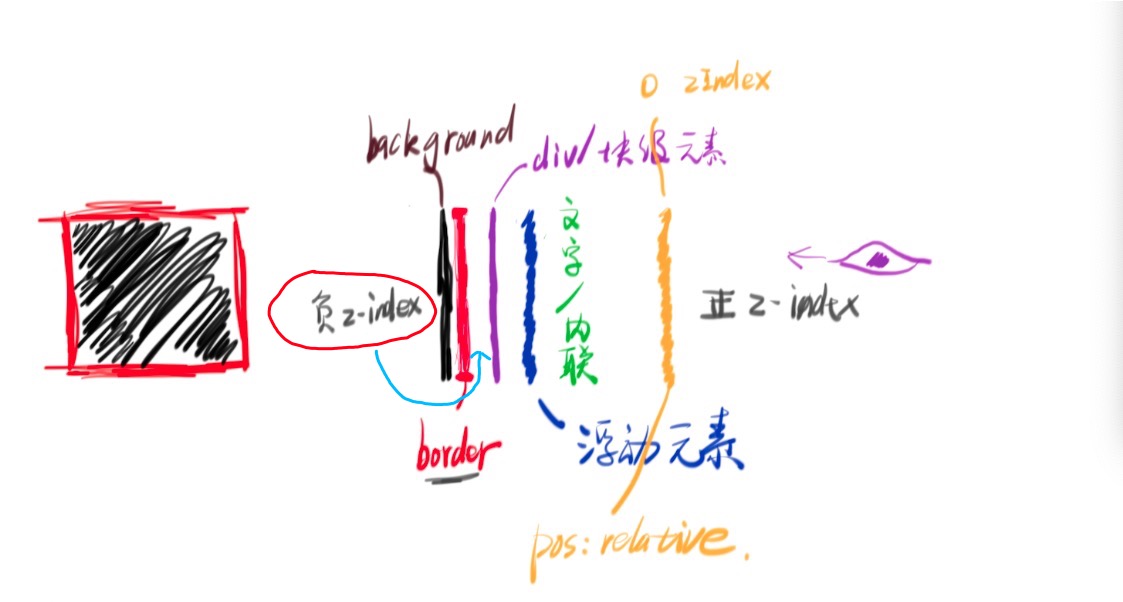 0 zIndex
background
div/块级元素
文字/内联
负z-index
正z-index
border
浮动元素
pos:relative.